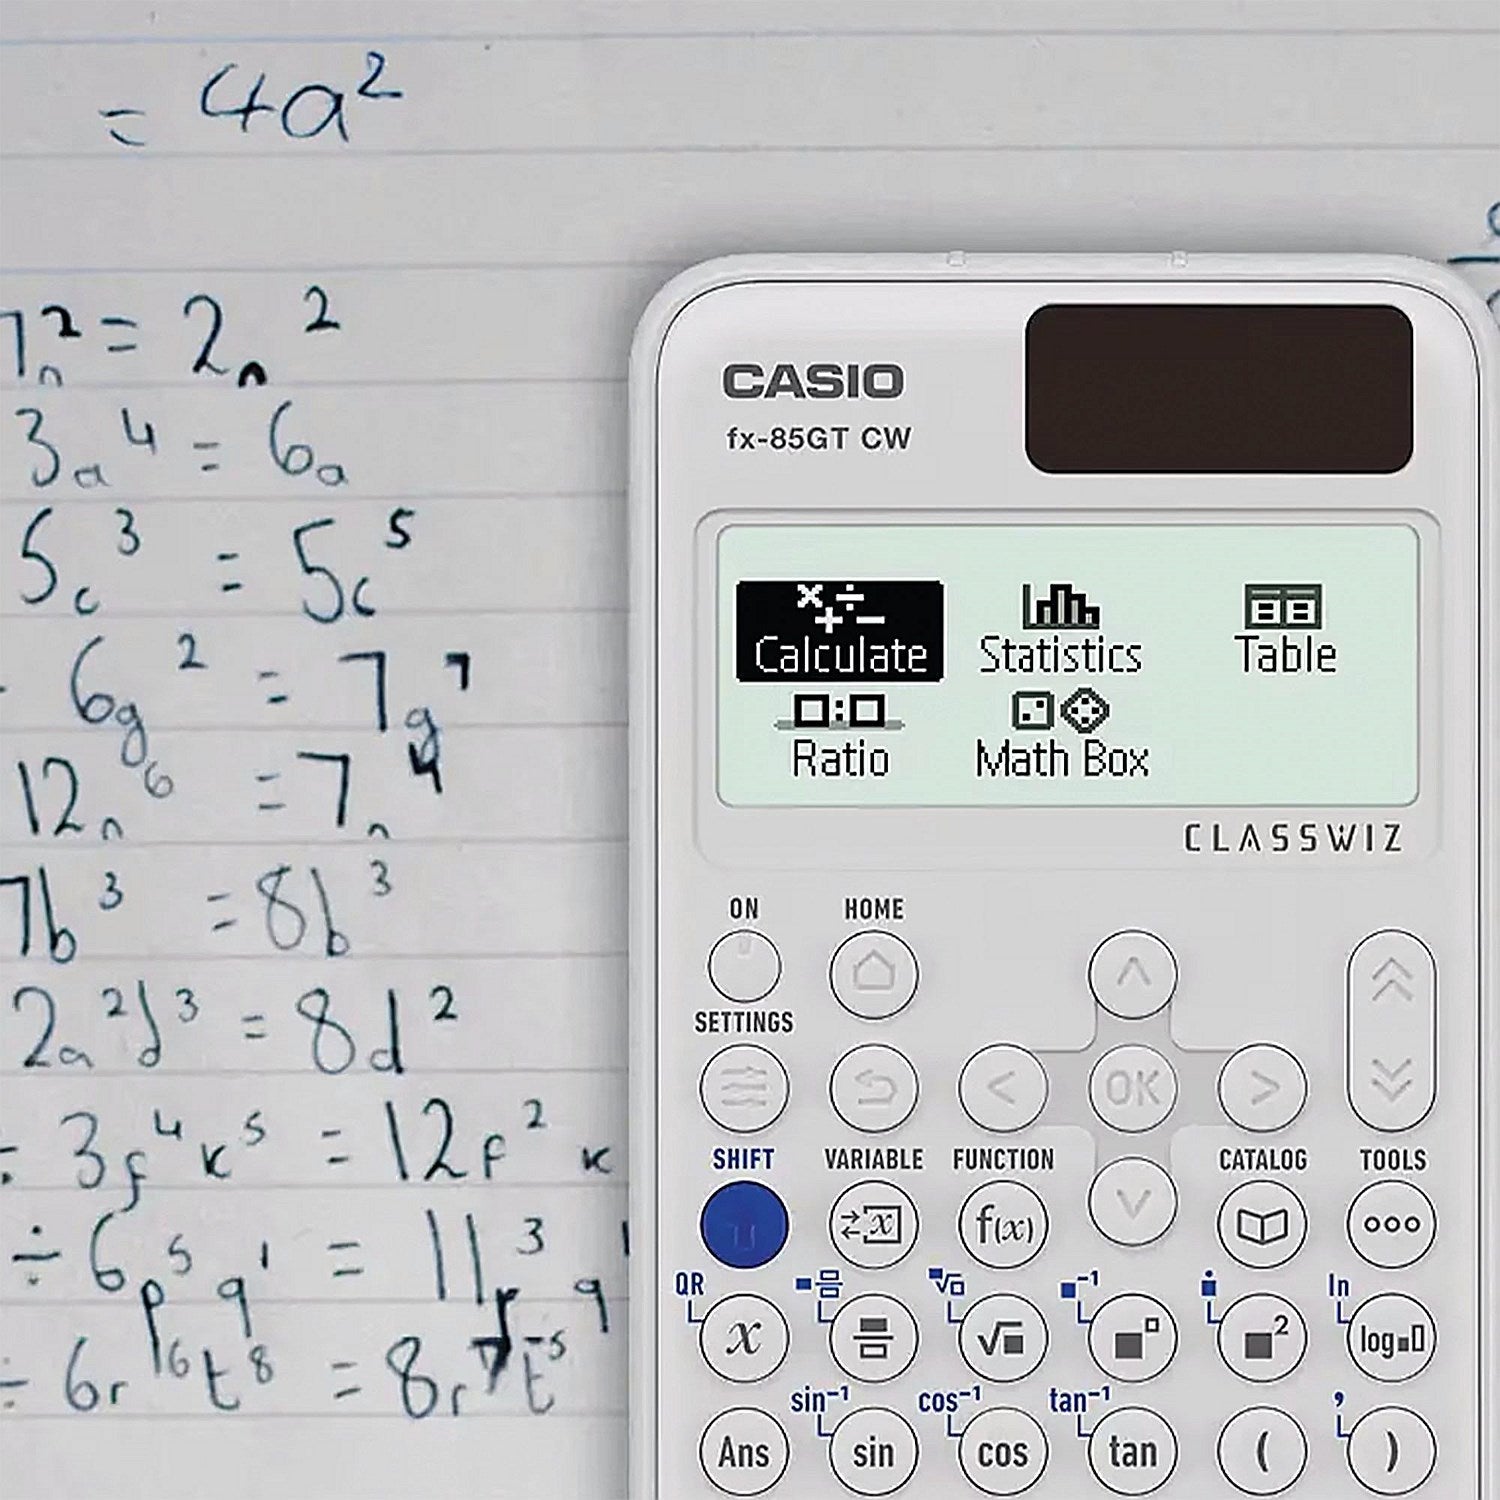 = 4a²
7n² = 2n²
3a⁴ = 6a
5c³ = 5c⁵
6g² = 7g⁷
12n⁶ = 7n⁴
7b³ = 8b³
2a²d³ = 8d²
÷ 3f⁴k⁵ = 12f²k
÷ 6p⁵q¹ = 11p³q¹
÷ 6r¹⁶t⁸ = 8r⁷t⁻⁵
CASIO
fx-85GT CW
Calculate Statistics Table
Ratio Math Box
CLASSWIZ
ON HOME
SETTINGS
< OK >
SHIFT VARIABLE FUNCTION CATALOG TOOLS
x f(x)
QR √ ⁻¹ ln
x √ ² log
sin⁻¹ cos⁻¹ tan⁻¹ ,
Ans sin cos tan ( )